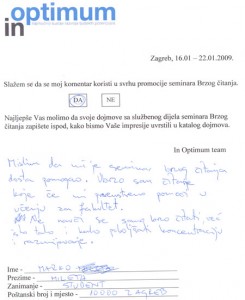 in optimum
Zagreb, 16.01 – 22.01.2009.
Slažem se da se moj komentar koristi u svrhu promocije seminara Brzog čitanja.
DA NE
Najljepše Vas molimo da svoje dojmove sa službenog dijela seminara Brzog
čitanja zapišete ispod, kako bismo Vaše impresije uvrstili u katalog dojmova.
In Optimum team
Mislim da mi je seminar brzog čitanja
dosta pomogao. Ubrzo sam čitanje
koje će mi pomoći u
učenju za fakultet.
Ne moći se samo brzo čitati već
isto tako i bolje koncentraciju
i razumijevanje.
Ime – MARKO
Prezime – MILETA
Zanimanje – STUDENT
Poštanski broj i mjesto – 10000 ZAGREB